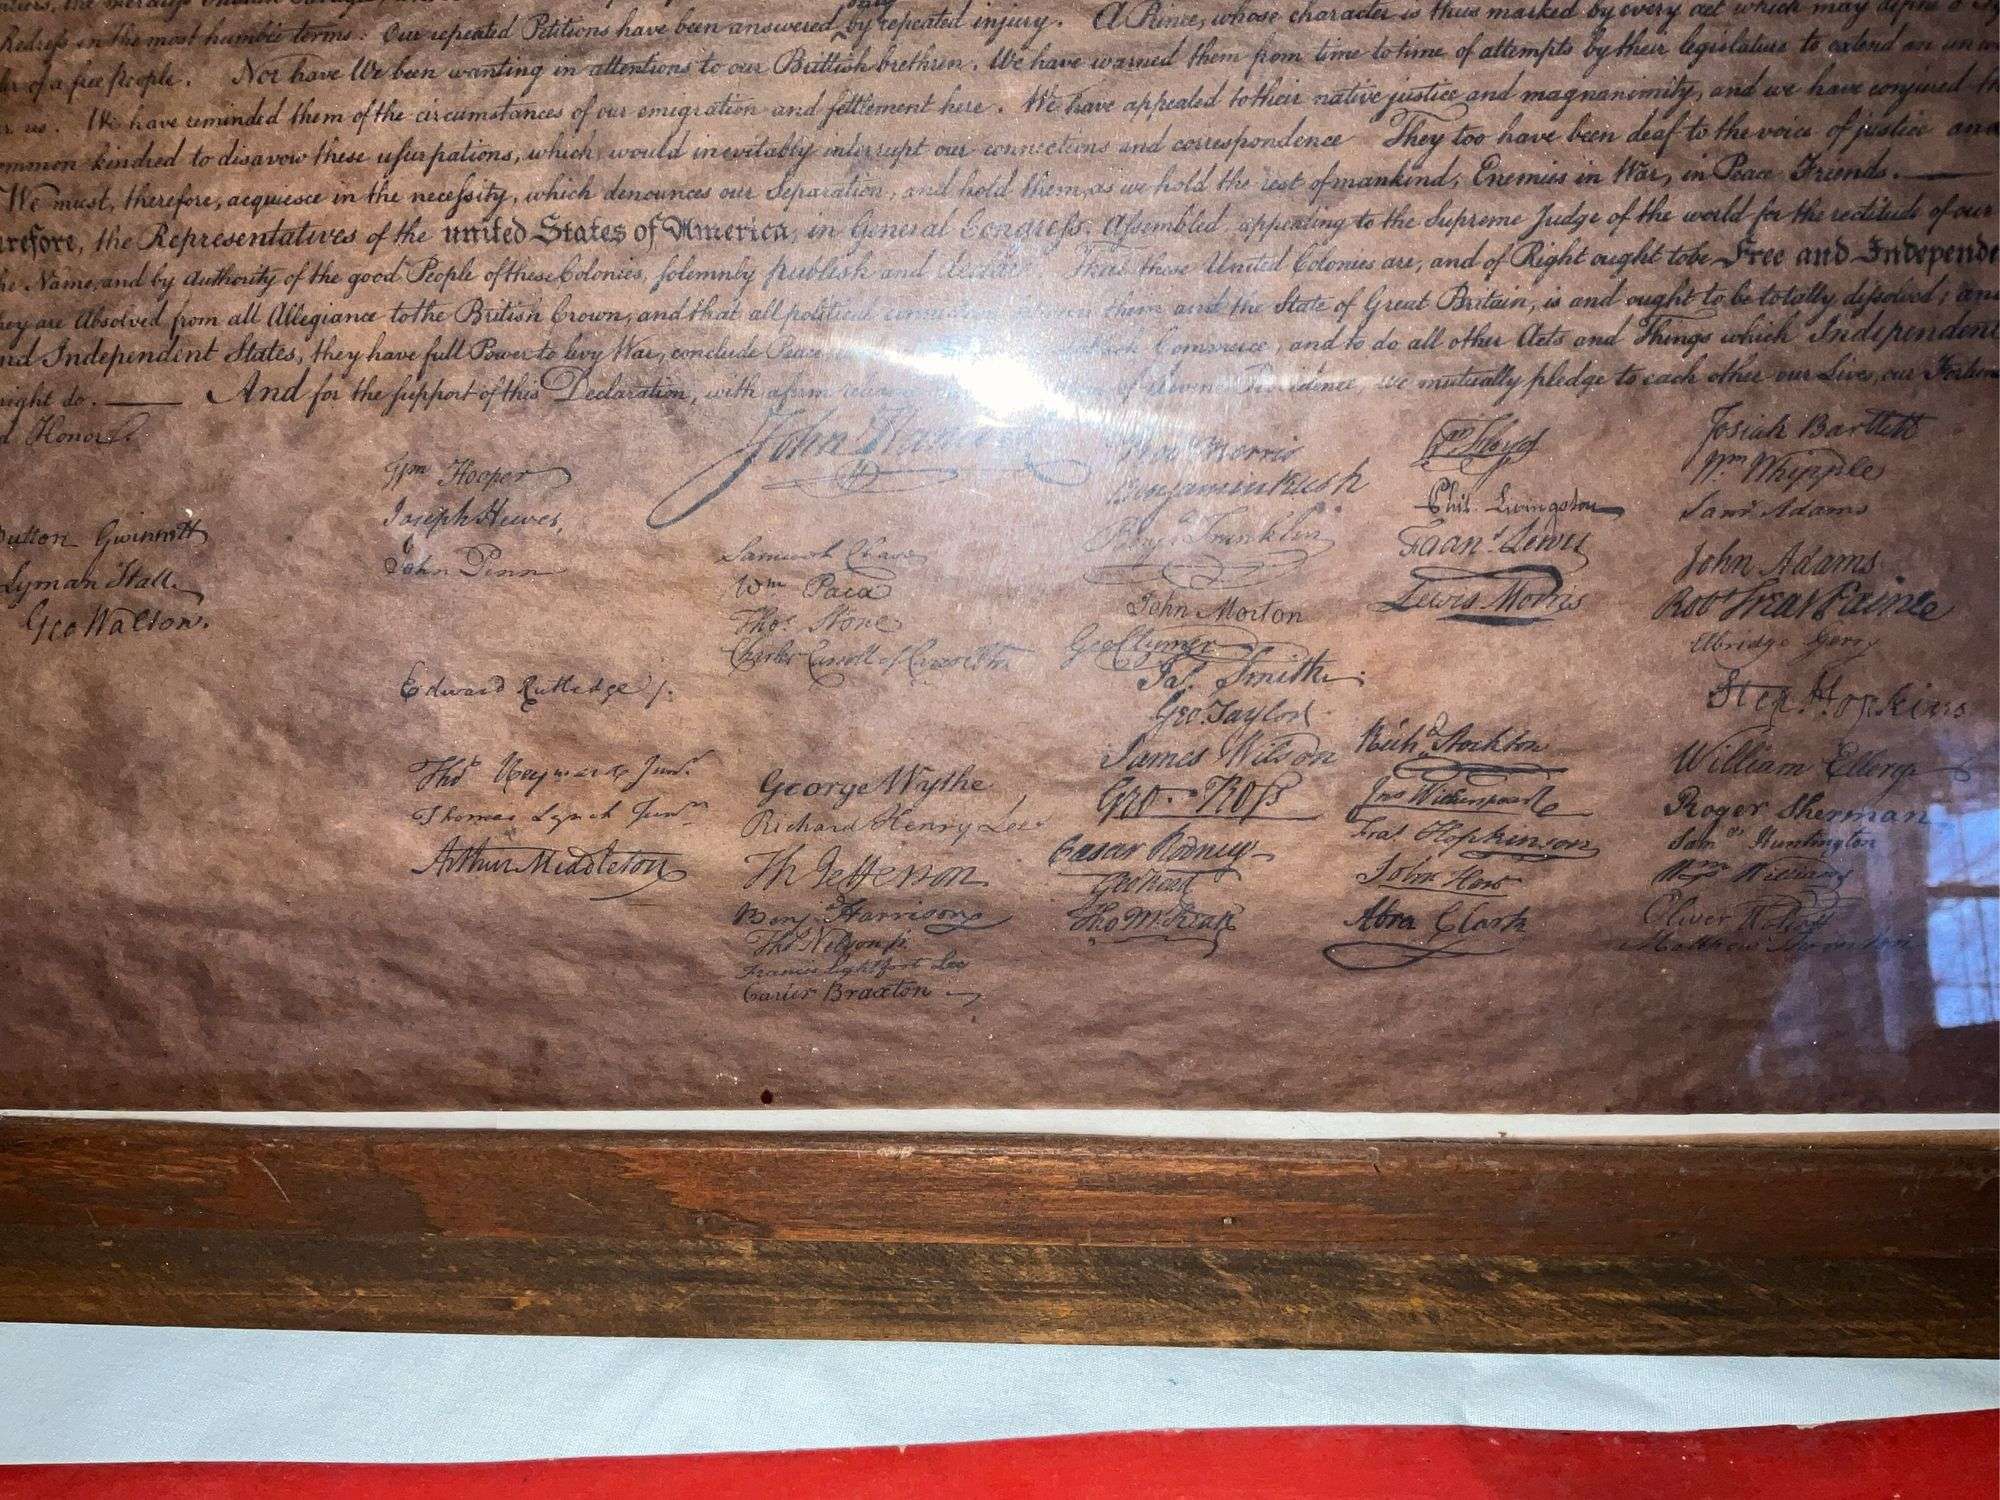 Redress in the most humble terms: Our repeated Petitions have been answered only by repeated injury. A Prince, whose character is thus marked by every act which may define a
of a free people. Nor have We been wanting in attentions to our Brittish brethren. We have warned them from time to time of attempts by their legislature to extend an
us. We have reminded them of the circumstances of our emigration and settlement here. We have appealed to their native justice and magnanimity, and we have conjured
kindred to disavow these usurpations, which would inevitably interrupt our connections and correspondence They too have been deaf to the voice of justice and
We must, therefore, acquiesce in the necessity, which denounces our Separation, and hold them, as we hold the rest of mankind, Enemies in War, in Peace Friends.
the Representatives of the united States of America, in General Congress, Assembled, appealing to the Supreme Judge of the world for the rectitude of our
Name, and by Authority of the good People of these Colonies, solemnly publish and declare That these United Colonies are, and of Right ought to be Free and
they are Absolved from all Allegiance to the British Crown, and that all political connection between them and the State of Great Britain, is and ought to be totally dissolved; and
Independent States, they have full Power to levy War, conclude Peace, Commerce, and to do all other Acts and Things which Independent
do. And for the support of this Declaration, with a firm of divine Providence, we mutually pledge to each other our Lives, our
Honor.
John
Button Gwinnett
Lyman Hall
Geo Walton.
Wm Hooper
Joseph Hewes,
John Penn
Edward Rutledge /.
Thos Heyward Junr.
Thomas Lynch Junr
Arthur Middleton
Samuel Chase
Wm Paca
Thos Stone
Charles Carroll of Carrollton
George Wythe
Richard Henry Lee
Th Jefferson
Benj Harrison
Thos Nelson jr.
Francis Lightfoot Lee
Carter Braxton
Robt Morris
Benjamin Rush
Benj Franklin
John Morton
Geo Clymer
Jas. Smith
Geo. Taylor
James Wilson
Geo. Ross
Caesar Rodney
Geo Read
Tho M:Kean
Wm Floyd
Phil. Livingston
Frans. Lewis
Lewis Morris
Richd Stockton
Jno Witherspoon
Fras. Hopkinson
John Hart
Abra Clark
Josiah Bartlett
Wm Whipple
Saml Adams
John Adams
Robt Treat Paine
Elbridge Gerry
Step. Hopkins
William Ellery
Roger Sherman
Saml Huntington
Wm Williams
Oliver Wolcott
Matthew Thornton